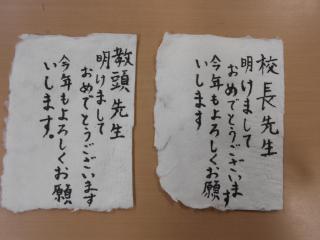 校長先生
明けまして
おめでとうございます
今年もよろしくお願
いします
教頭先生
明けまして
おめでとうございます
今年もよろしくお願
いします。